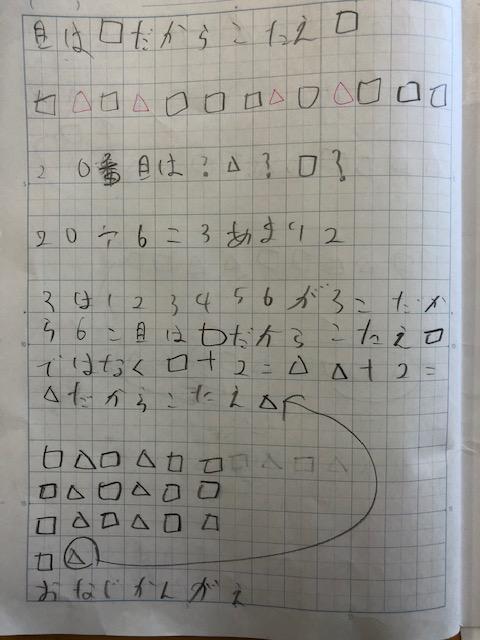 目は□だからこたえ□
□△□△□□□△□△□□□
20番目は?△?□?
20÷6=3あまり2
3は123456が3こだか
ら6こ目は□だからこたえ□
ではなく□+2=△△+2=
△だからこたえ△
□△□△□□□△□△
□△□△□□
□△□△□□
□△
おなじかんがえ